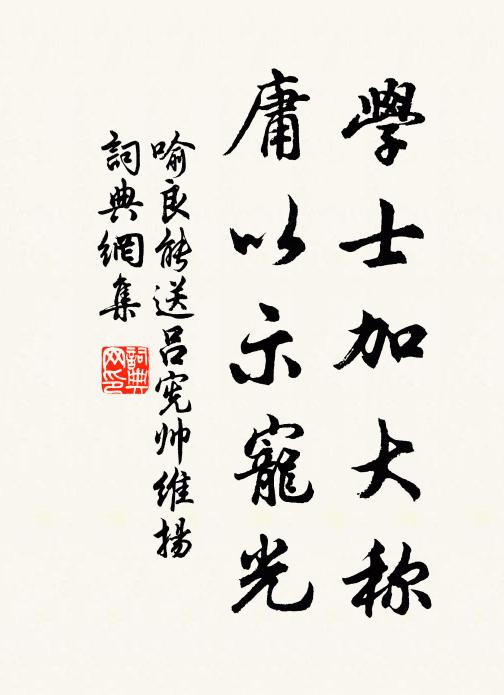 學士加大称
庸以示寵光
喻良能送吕宪帅維揚
詞典網集
詞典网印